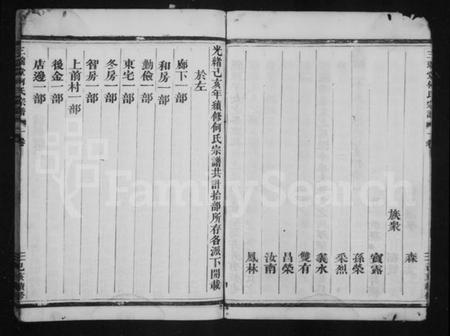 三瑞堂何氏宗譜
森
族眾
賓露
孫榮
采烈
義水
雙有
昌榮
汝南
鳳林
光緒己亥年續修何氏宗譜共計拾部所存各派下開載
於左
廊下一部
和房一部
勤儉一部
東宅一部
冬房一部
智房一部
上前村一部
後金一部
店邊一部
FamilySearch